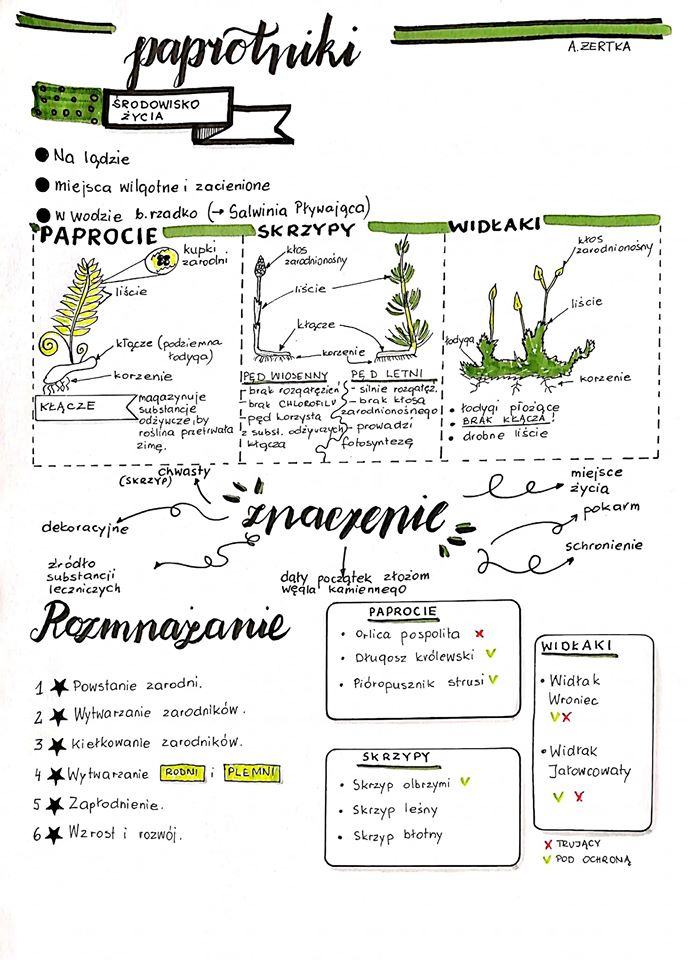 paprotniki
A. ZERTKA
ŚRODOWISKO
ŻYCIA
Na lądzie
miejsca wilgotne i zacienione
w wodzie b. rzadko (→ Salwinia Pływająca)
PAPROCIE
kupki
zarodni
liście
kłącze (podziemna
łodyga)
korzenie
KŁĄCZE
magazynuje
substancje
odżywcze, by
roślina przetrwała
zimę.
SKRZYPY
kłos
zarodnionośny
liście
kłącze
korzenie
PĘD WIOSENNY
- brak rozgałęzień
- brak CHLOROFILU
- pęd korzysta
z subst. odżywczych
kłącza
PĘD LETNI
- silnie rozgałęz.
- brak kłosa
zarodnionośnego
- prowadzi
fotosyntezę
WIDŁAKI
kłos
zarodnionośny
liście
łodyga
korzenie
• łodygi płożące
• BRAK KŁĄCZA!
• drobne liście
znaczenie
chwasty
(SKRZYP)
dekoracyjne
źródło
substancji
leczniczych
dały początek złożom
węgla kamiennego
miejsce
życia
pokarm
schronienie
Rozmnażanie
1 ★ Powstanie zarodni.
2 ★ Wytwarzanie zarodników.
3 ★ Kiełkowanie zarodników.
4 ★ Wytwarzanie RODNI i PLEMNI
5 ★ Zapłodnienie.
6 ★ Wzrost i rozwój.
PAPROCIE
• Orlica pospolita x
• Długosz królewski v
• Pióropusznik strusi v
SKRZYPY
• Skrzyp olbrzymi v
• Skrzyp leśny
• Skrzyp błotny
WIDŁAKI
• Widłak
Wroniec
v x
• Widłak
Jałowcowaty
v x
x TRUJĄCY
v POD OCHRONĄ